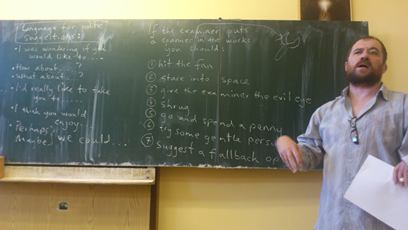 Language for polite
suggestions:
• I was wondering if you
would like to ...
• How about....?
• What about....?
• I'd really like to take
you to ....
• I think you would
enjoy
• Perhaps
Maybe } we could...
If the examiner puts
a spanner in the works
you should:
① hit the fan
② stare into space
③ give the examiner the evil eye
④ shrug
⑤ go and spend a penny
⑥ try some gentle
⑦ suggest a fallback